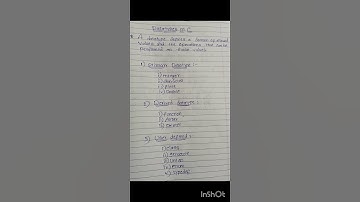 Datatypes in C
A datatype defines a
values and the operations that can be
performed on those values.
1) Primary Datatype :-
i) integer
ii) character
iii) float
iv) Double
2) Derived Datatype :-
i) function
ii) Array
iii) Pointer
3) User defined :-
i) class
ii) structure
iii) union
iv) Enum
v) Typedef
InShOt